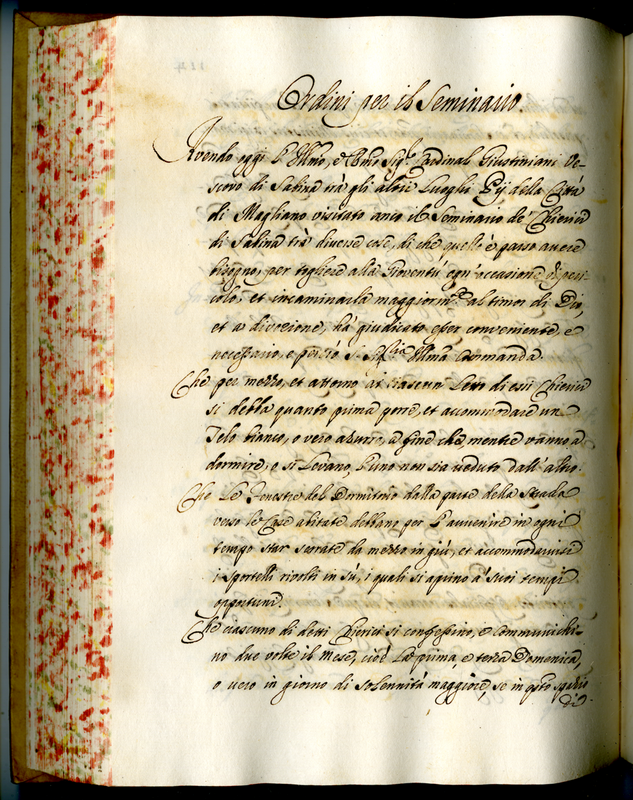 Ordini per il Seminario.
Avendo oggi l'Ill.mo, e R.mo Sig.r Cardinal Giustiniani Ve-
scovo di Sabina trà gli altri Luoghi Pij della Città
di Magliano visitato anco il Seminario de' Chierici
di Sabina trà diverse cose, di che quello è parso avere
bisogno, per togliere alla Gioventù ogn'occasione di peri-
colo, et incaminarla maggiorm.te al timor di Dio,
et a divozione, hà giudicato esser conveniente, e
necessario, e perciò S. Sig.ria Ill.ma Commanda.
Che per mezzo, et attorno à ciascun Letto di essi Chierici
si debba quanto prima porre, et accommodare un
Telo bianco, o vero azurro, a fine che mentre vanno a
dormire, e si Levano, l'uno non sia veduto dall'altro.
Che Le Fenestre del Dormitorio dalla parte della Strada
verso le Case abitate debbano per l'avvenire in ogni
tempo star serrate da mezzo in giù, et accommodarvisi
i Sportelli rivolti in sù, i quali si aprino a' suoi tempi
opportuni.
Che ciascuno di detti Chierici si confessino, e Communichi-
no due volte il mese, cioè La prima, e terza Domenica,
o vero in giorno di Solennità maggiore, se in q.sto spazio
di